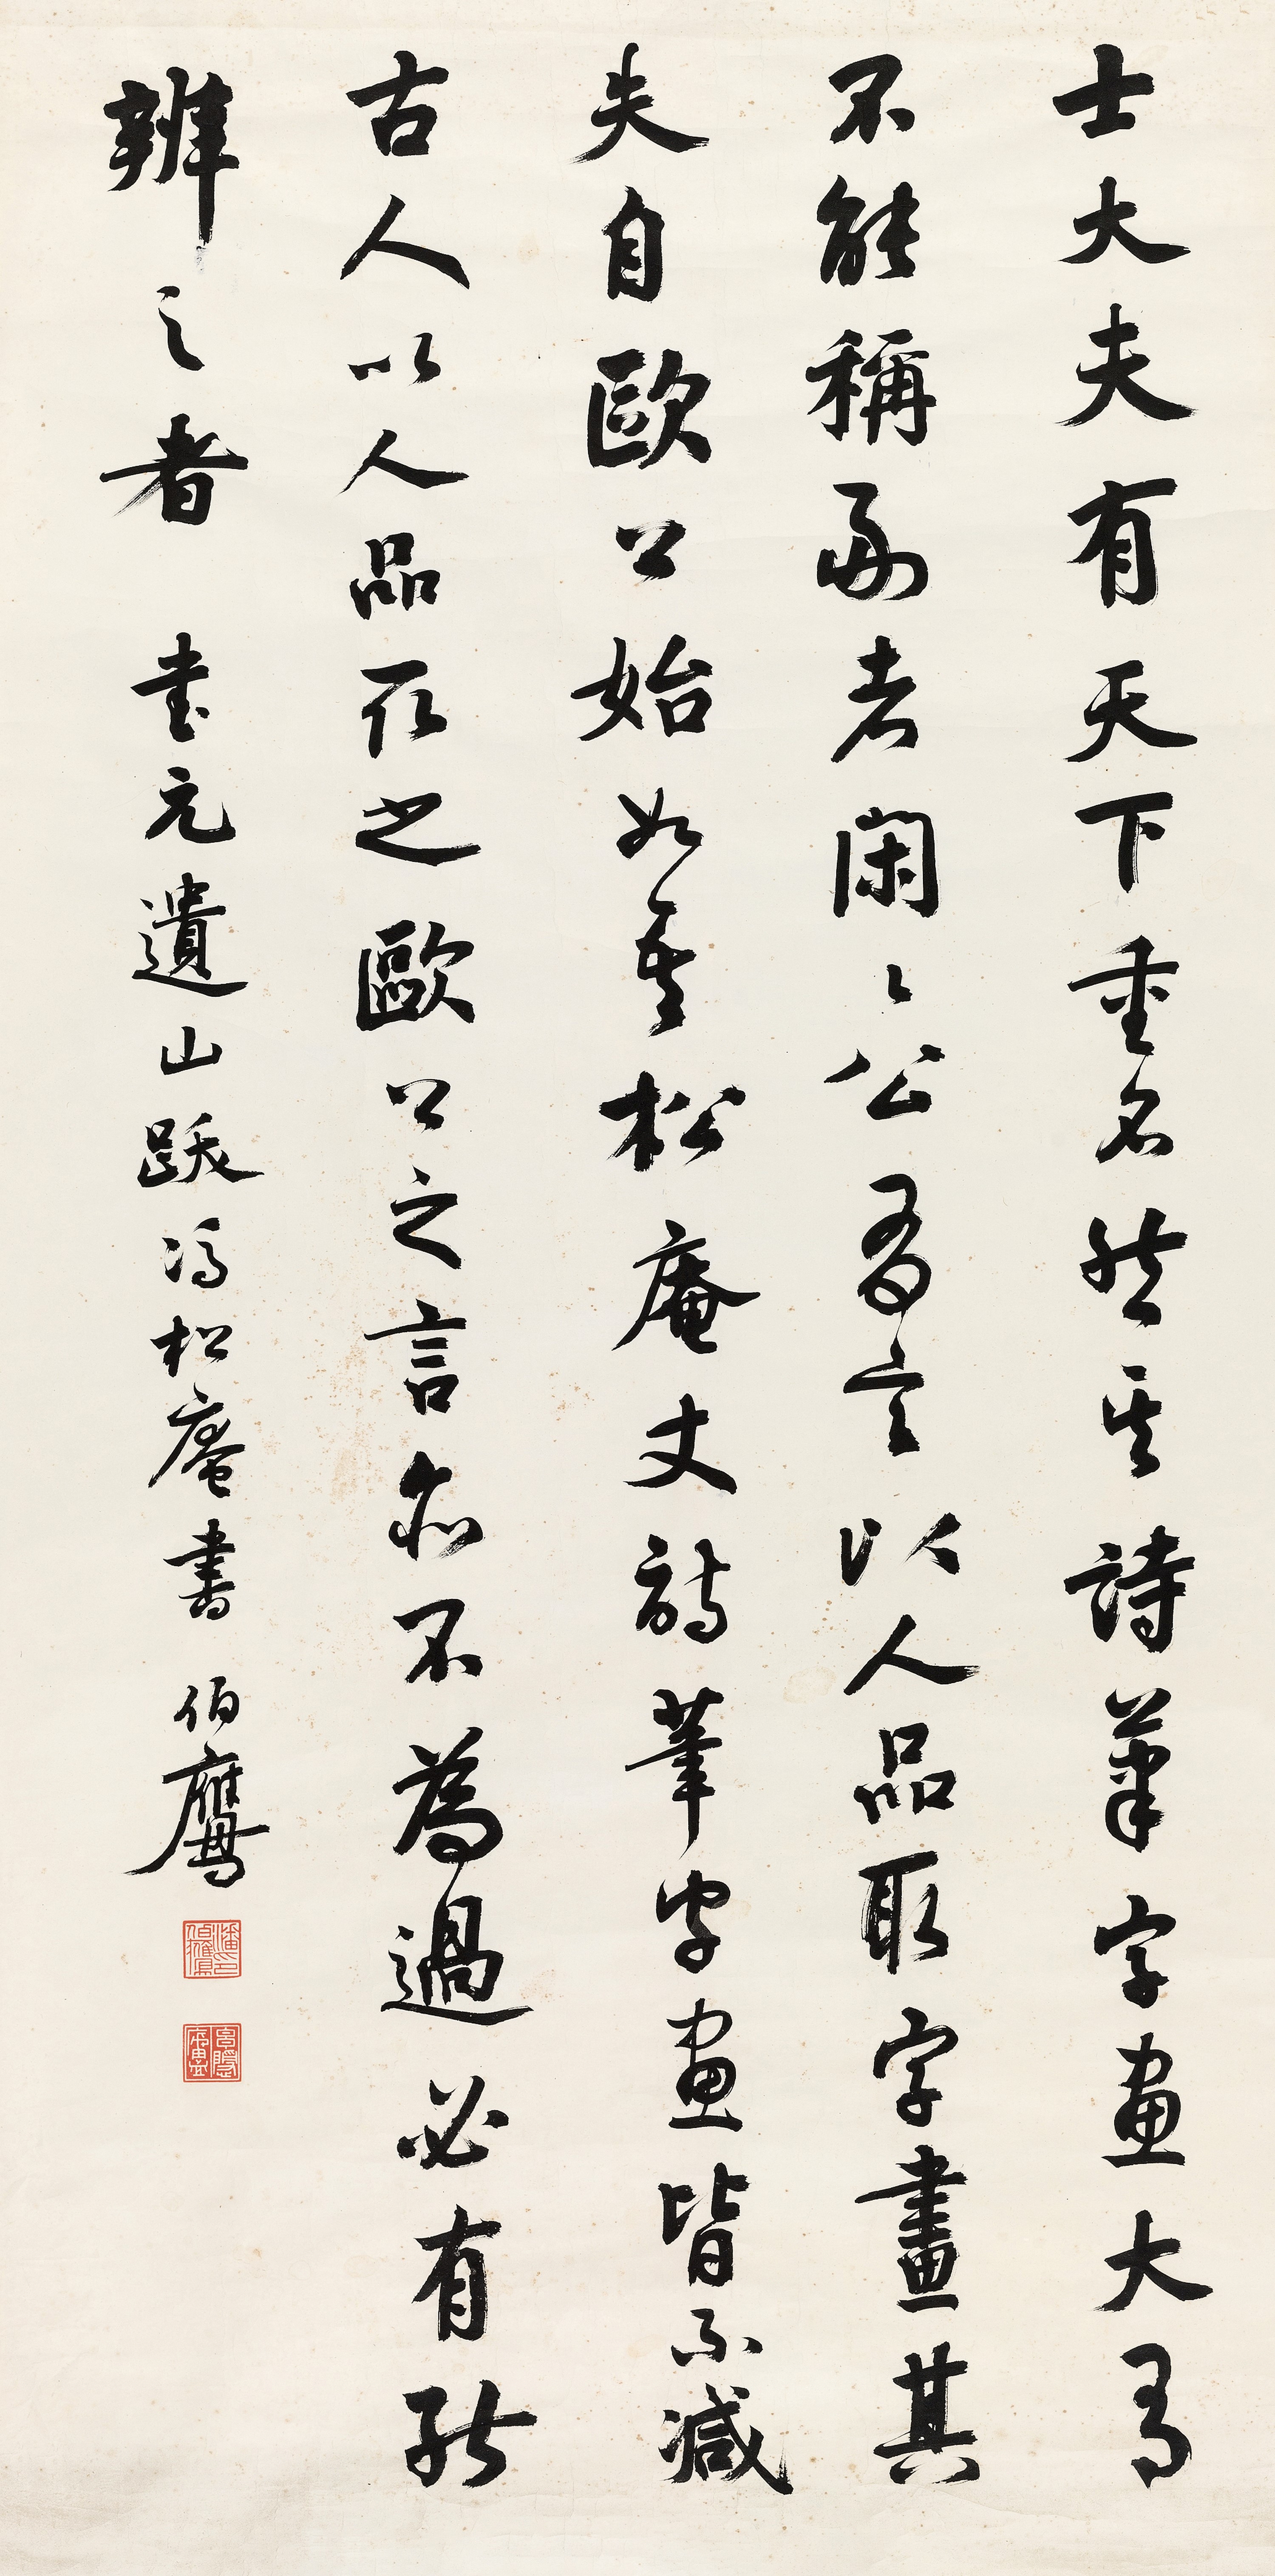 士大夫有天下重名然其詩筆字畫大有
不能稱副者閑〻公有言以人品取字畫其
失自歐公始如吾松庵丈詩筆字畫皆不減
古人以人品取之歐公之言亦不為過必有能
辨之者 書元遺山跋馮松庵書 伯鷹
潘印伯鷹